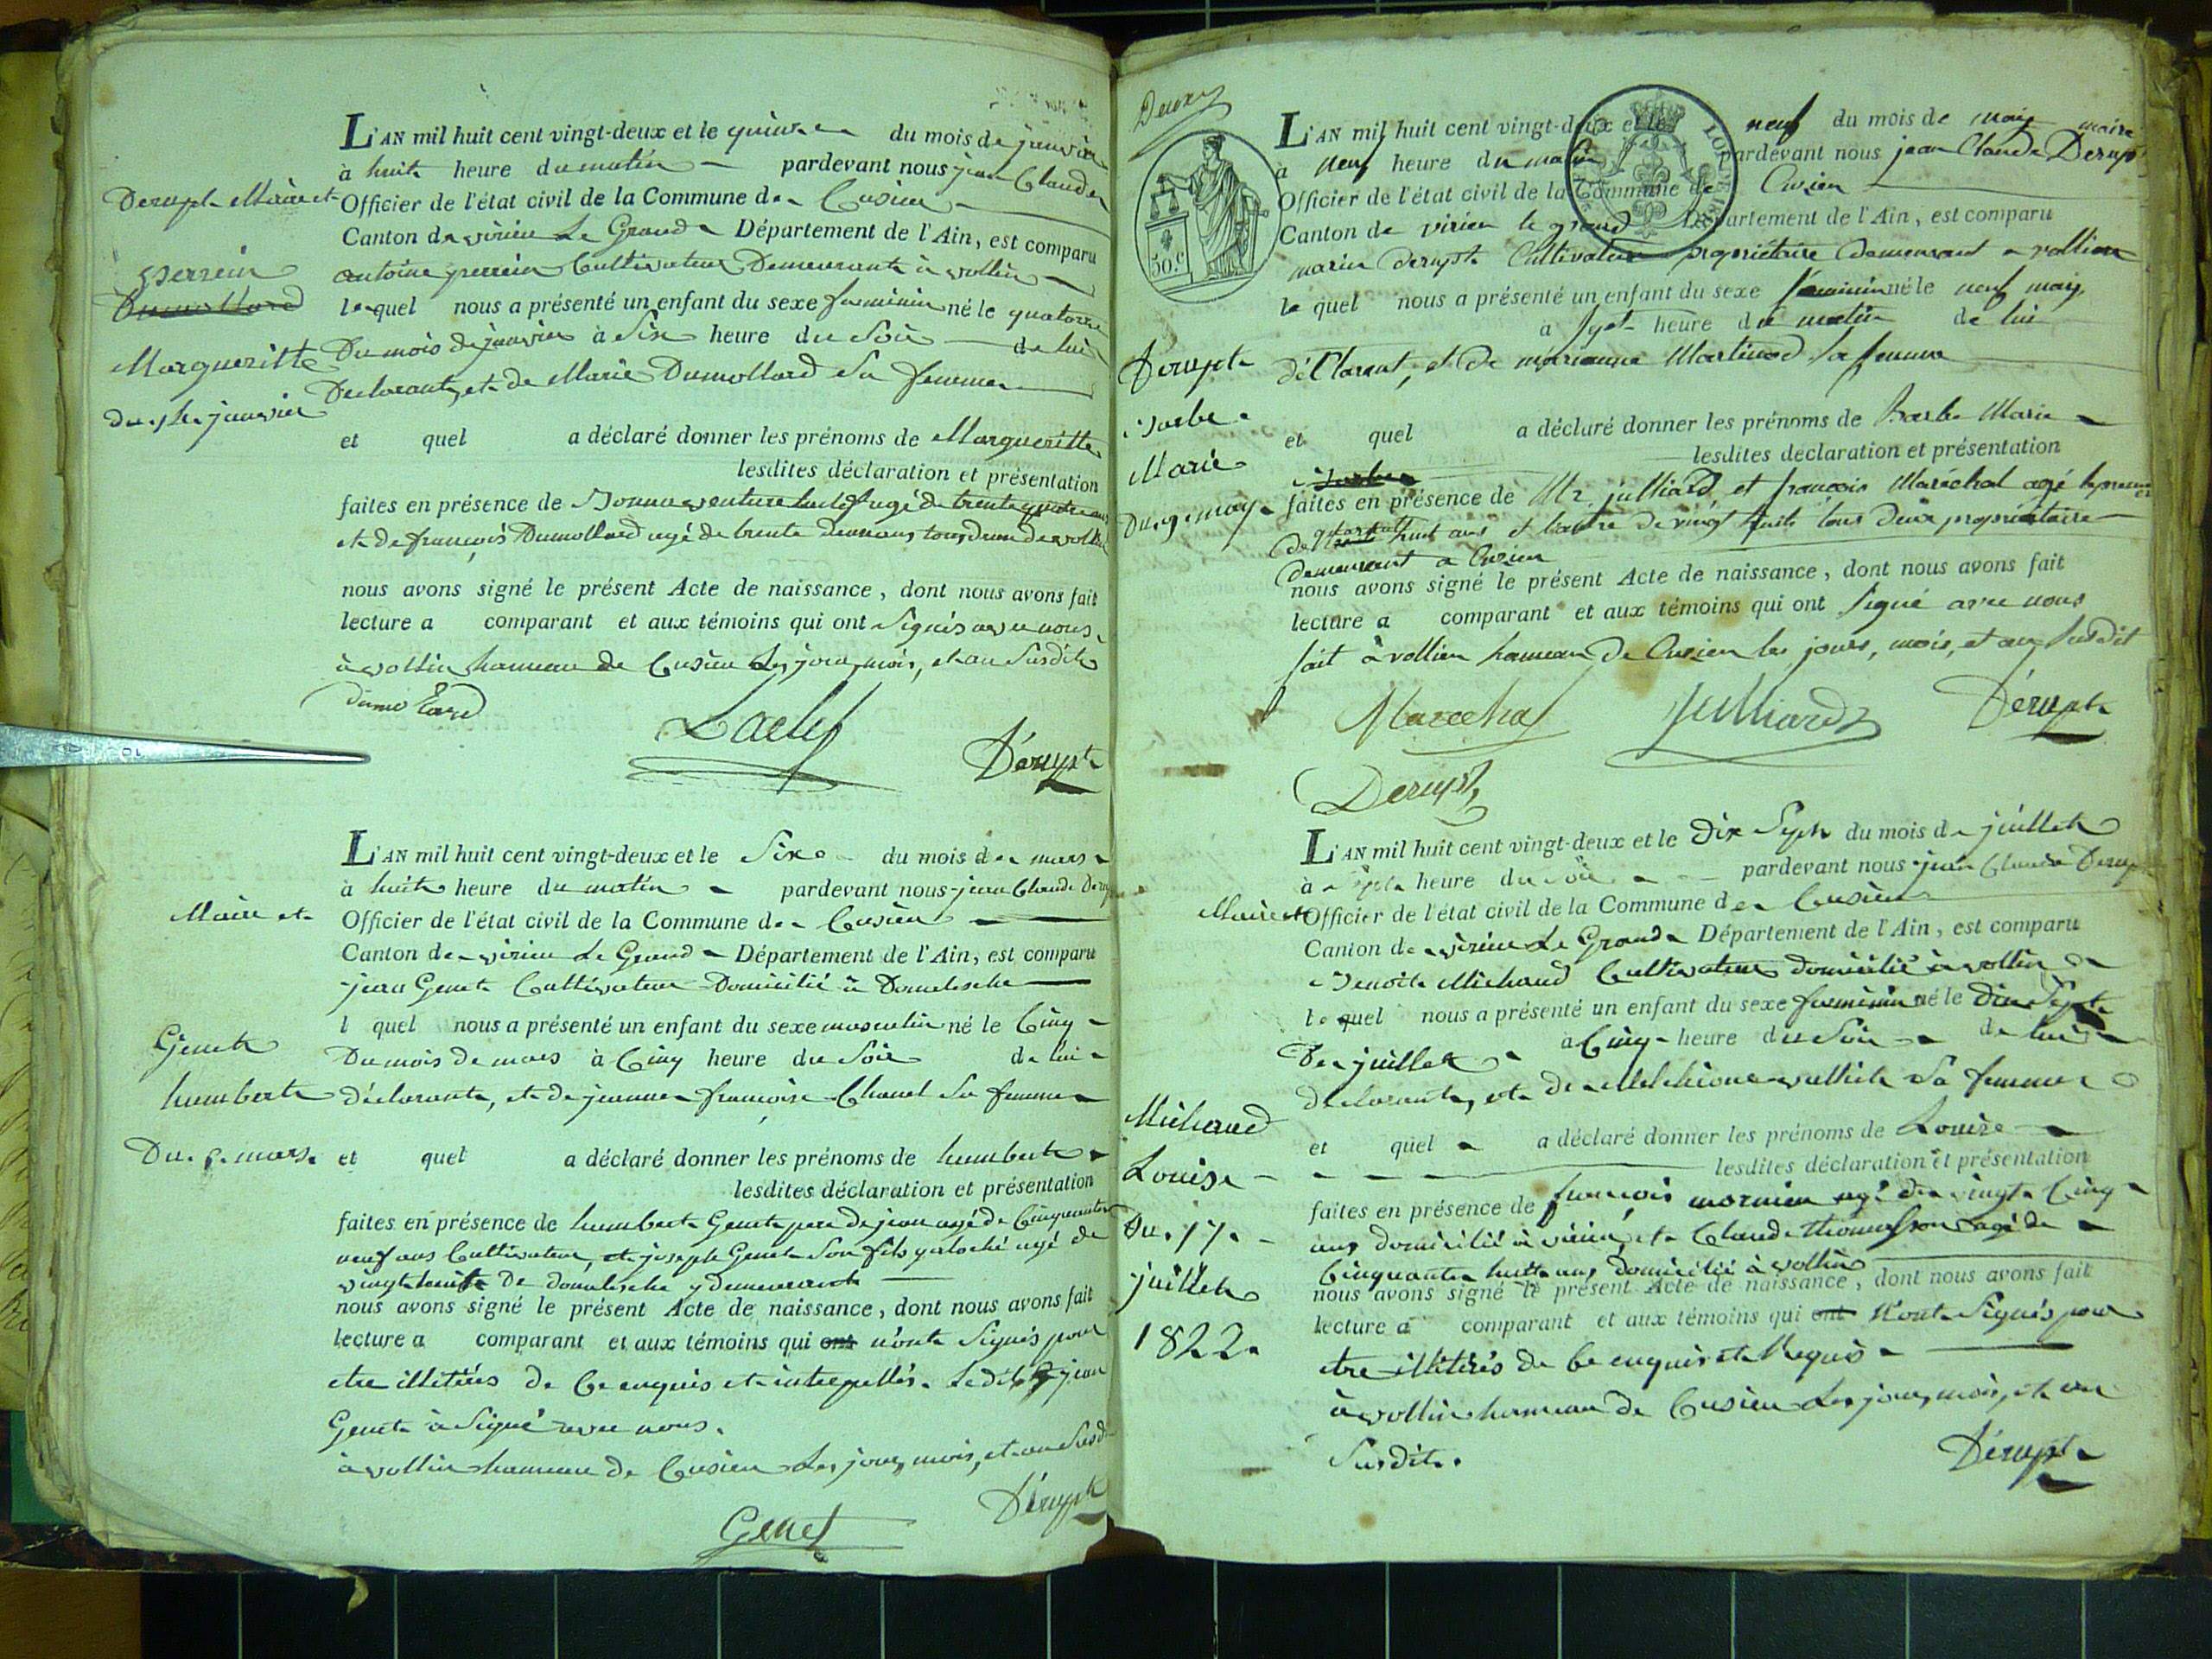 L'AN mil huit cent vingt-deux et le quinze du mois de janvier
à huit heure du matin pardevant nous jean Claude
Derupt Maire et Officier de l'état civil de la Commune de Cusieu
Canton de virieu Le Grand Département de l'Ain, est comparu
antoine perrein Cultivateur Demeurant à vollin
lequel nous a présenté un enfant du sexe feminin né le quatorze
Du mois de janvier à Six heure du Soir de lui
Declarant, et de Marie Dumollard Sa femme
et quel a déclaré donner les prénoms de Margueritte
lesdites déclaration et présentation
faites en présence de Bonnaventure agé de trente quatre ans
et de françois Dumollard agé de trente deux ans tous deux de vollin
nous avons signé le présent Acte de naissance, dont nous avons fait
lecture a comparant et aux témoins qui ont Signés avec nous.
à vollin hameau de Cusieu Les jour, mois, et an Susdits
perrein
Dumollard
Margueritte
du 14 janvier
dumolard
Dérupt
L'AN mil huit cent vingt-deux et le Six du mois de mars
à huit heure du matin pardevant nous jean Claude Derupt
Maire et Officier de l'état civil de la Commune de Cusieu
Canton de virieu Le Grand Département de l'Ain, est comparu
jean Genet Cultivateur Domicilié à
l quel nous a présenté un enfant du sexe masculin né le Cinq
Du mois de mars à Cinq heure du Soir de lui
déclarant, et de jeanne françoise Chanel Sa femme
et quel a déclaré donner les prénoms de humbert
lesdites déclaration et présentation
faites en présence de humbert Genet pere de jean agé de Cinquante
neuf ans Cultivateur, et joseph Genet Son fils agé de
vingt huit De y demeurant
nous avons signé le présent Acte de naissance, dont nous avons fait
lecture a comparant et aux témoins qui ont n'ont Signés pour
etre illitérés de Ce enquis et interpellés. Ledit jean
Genet à Signé avec nous.
à vollin hameau de Cusieu Les jour, mois, et an Susdit
Genet
humbert
Du 5 mars
Dérupt
Genet
Deux
50.c
L'AN mil huit cent vingt-deux et le neuf du mois de may maire
à neuf heure du matin pardevant nous jean Claude Derupt
Officier de l'état civil de la Commune de Cusieu
Canton de virieu le grand Département de l'Ain, est comparu
marin Derupt Cultivateur propriétaire demeurant a vollien
le quel nous a présenté un enfant du sexe féminin né le neuf may
à sept heure du matin de lui
déclarant, et de marianne Martinod Sa femme
et quel a déclaré donner les prénoms de Barbe Marie
lesdites déclaration et présentation
faites en présence de Mr julliard et françois Maréchal agé le premier
de quarante huit ans et l'autre de vingt huit tous deux propriétaire
demeurant a Cusieu
nous avons signé le présent Acte de naissance, dont nous avons fait
lecture a comparant et aux témoins qui ont Signé avec nous
fait à vollien hameau De Cusieu les jours, mois, et an Susdit
Derupt
Barbe
Marie
Du 9 may
Marechal
Julliard
Dérupt
Derupt
L'AN mil huit cent vingt-deux et le Dix Sept du mois de juillet
à sept heure du soir pardevant nous jean Claude Derupt
Maire et Officier de l'état civil de la Commune de Cusieu
Canton de virieu Le Grand Département de l'Ain, est comparu
Benoit Michaud Cultivateur domicilié à vollin
le quel nous a présenté un enfant du sexe feminin né le Dix Sept
De juillet à Cinq heure du Soir de lui
declarant, et de Sa femme
et quel a déclaré donner les prénoms de Louise
lesdites déclaration et présentation
faites en présence de françois agé de vingt Cinq
ans domicilié à virieu, et Claude agé de
Cinquante huit ans domicilié à vollin
nous avons signé le présent Acte de naissance, dont nous avons fait
lecture a comparant et aux témoins qui ont N'ont Signés pour
etre illitérés de Ce enquis et Requis
à vollin hameau de Cusieu Les jour, mois, et an
Susdit.
Michaud
Louise
Du 17
juillet
1822
Dérupt